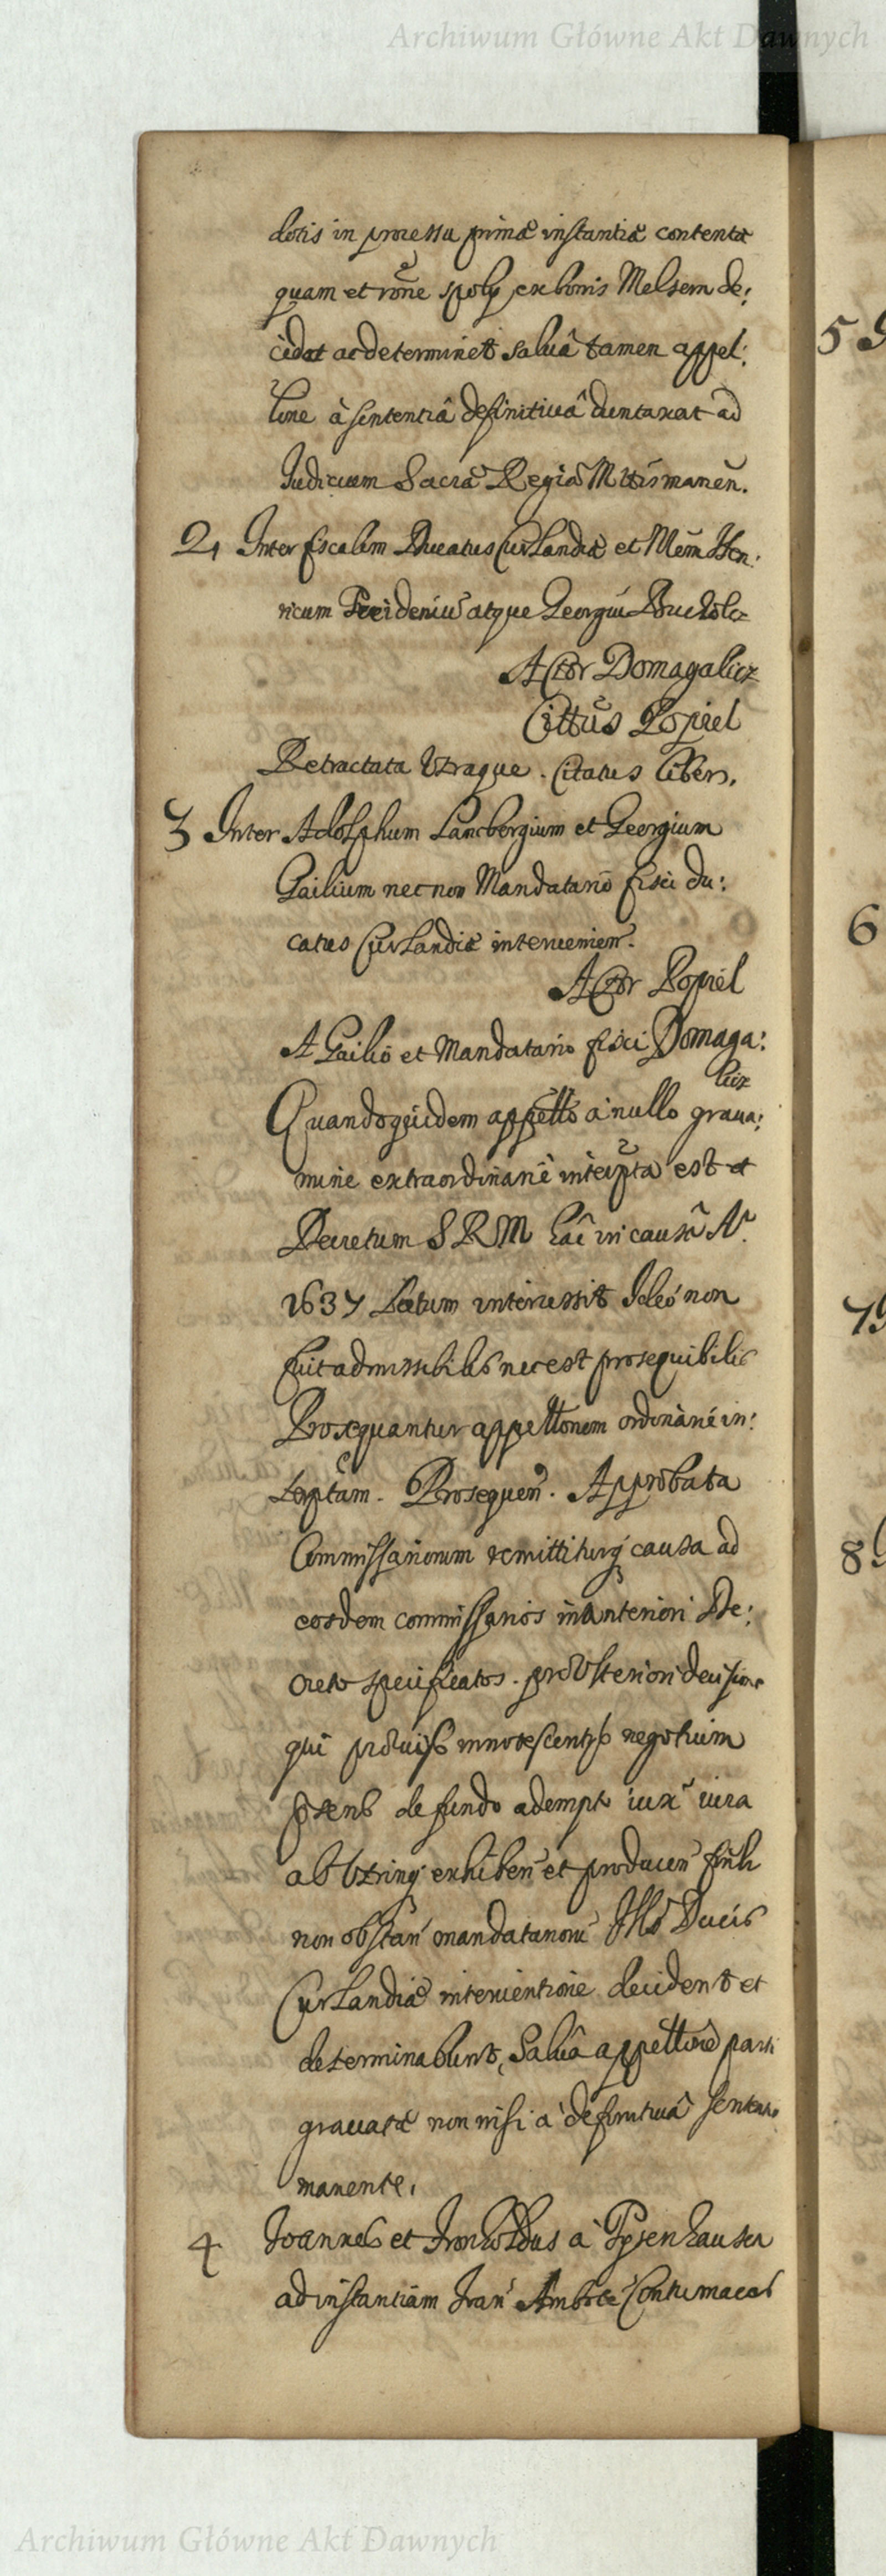 Archiwum Główne Akt Dawnych
dotis in processu primæ instantiæ contentæ
quam et rõne spoly ex bonis Melsem de:
cidat ac determinet salvâ tamen appel:
lõne à sententiâ definitivâ duntaxat ad
Judicium Sacræ Regiæ Mttis manen.
2, Inter fiscalem Ducatus Curlandiæ et Hen:
ricum atque Georgiũ
Actor Domagalicz
Cittũs Popiel
Retractata Utraque. Citatus liber.
3 Inter Adolphum Lancbergium et Georgium
Gailium nec non Mandatariũ fisci du:
catus Curlandiæ intervenien.
Actor Popiel
A Gailio et Mandatario fisci Domaga:
licz
Quandoquidem appello à nullo grava:
mine extraordinariè interpta est et
Decretum S R M hac in causa Aº.
1637 Latum intercessit Ideo non
fuit admissibilis nec est prosequibilis
Prosequantur appellonem ordinariè in:
terptam. Prosequen. Approbata
Commissariorum remittiturq causa ad
eosdem commissarios in anteriori De:
creto specificatos. pro Ulteriori decisione
qui innotescentys negotium
psens de fundo adempto iuxª iura
ab Utrinq exhiben et producen
non obstan mandatariorũ Illº Ducis
Curlandiæ interventione decident et
determinabunt, Salvâ appellõne parti
gravatæ non nisi à definitivâ senten
manente,
4 Joannes et à Tysenhausen
ad instantiam Contumaces
5
6
7
8
Archiwum Główne Akt Dawnych